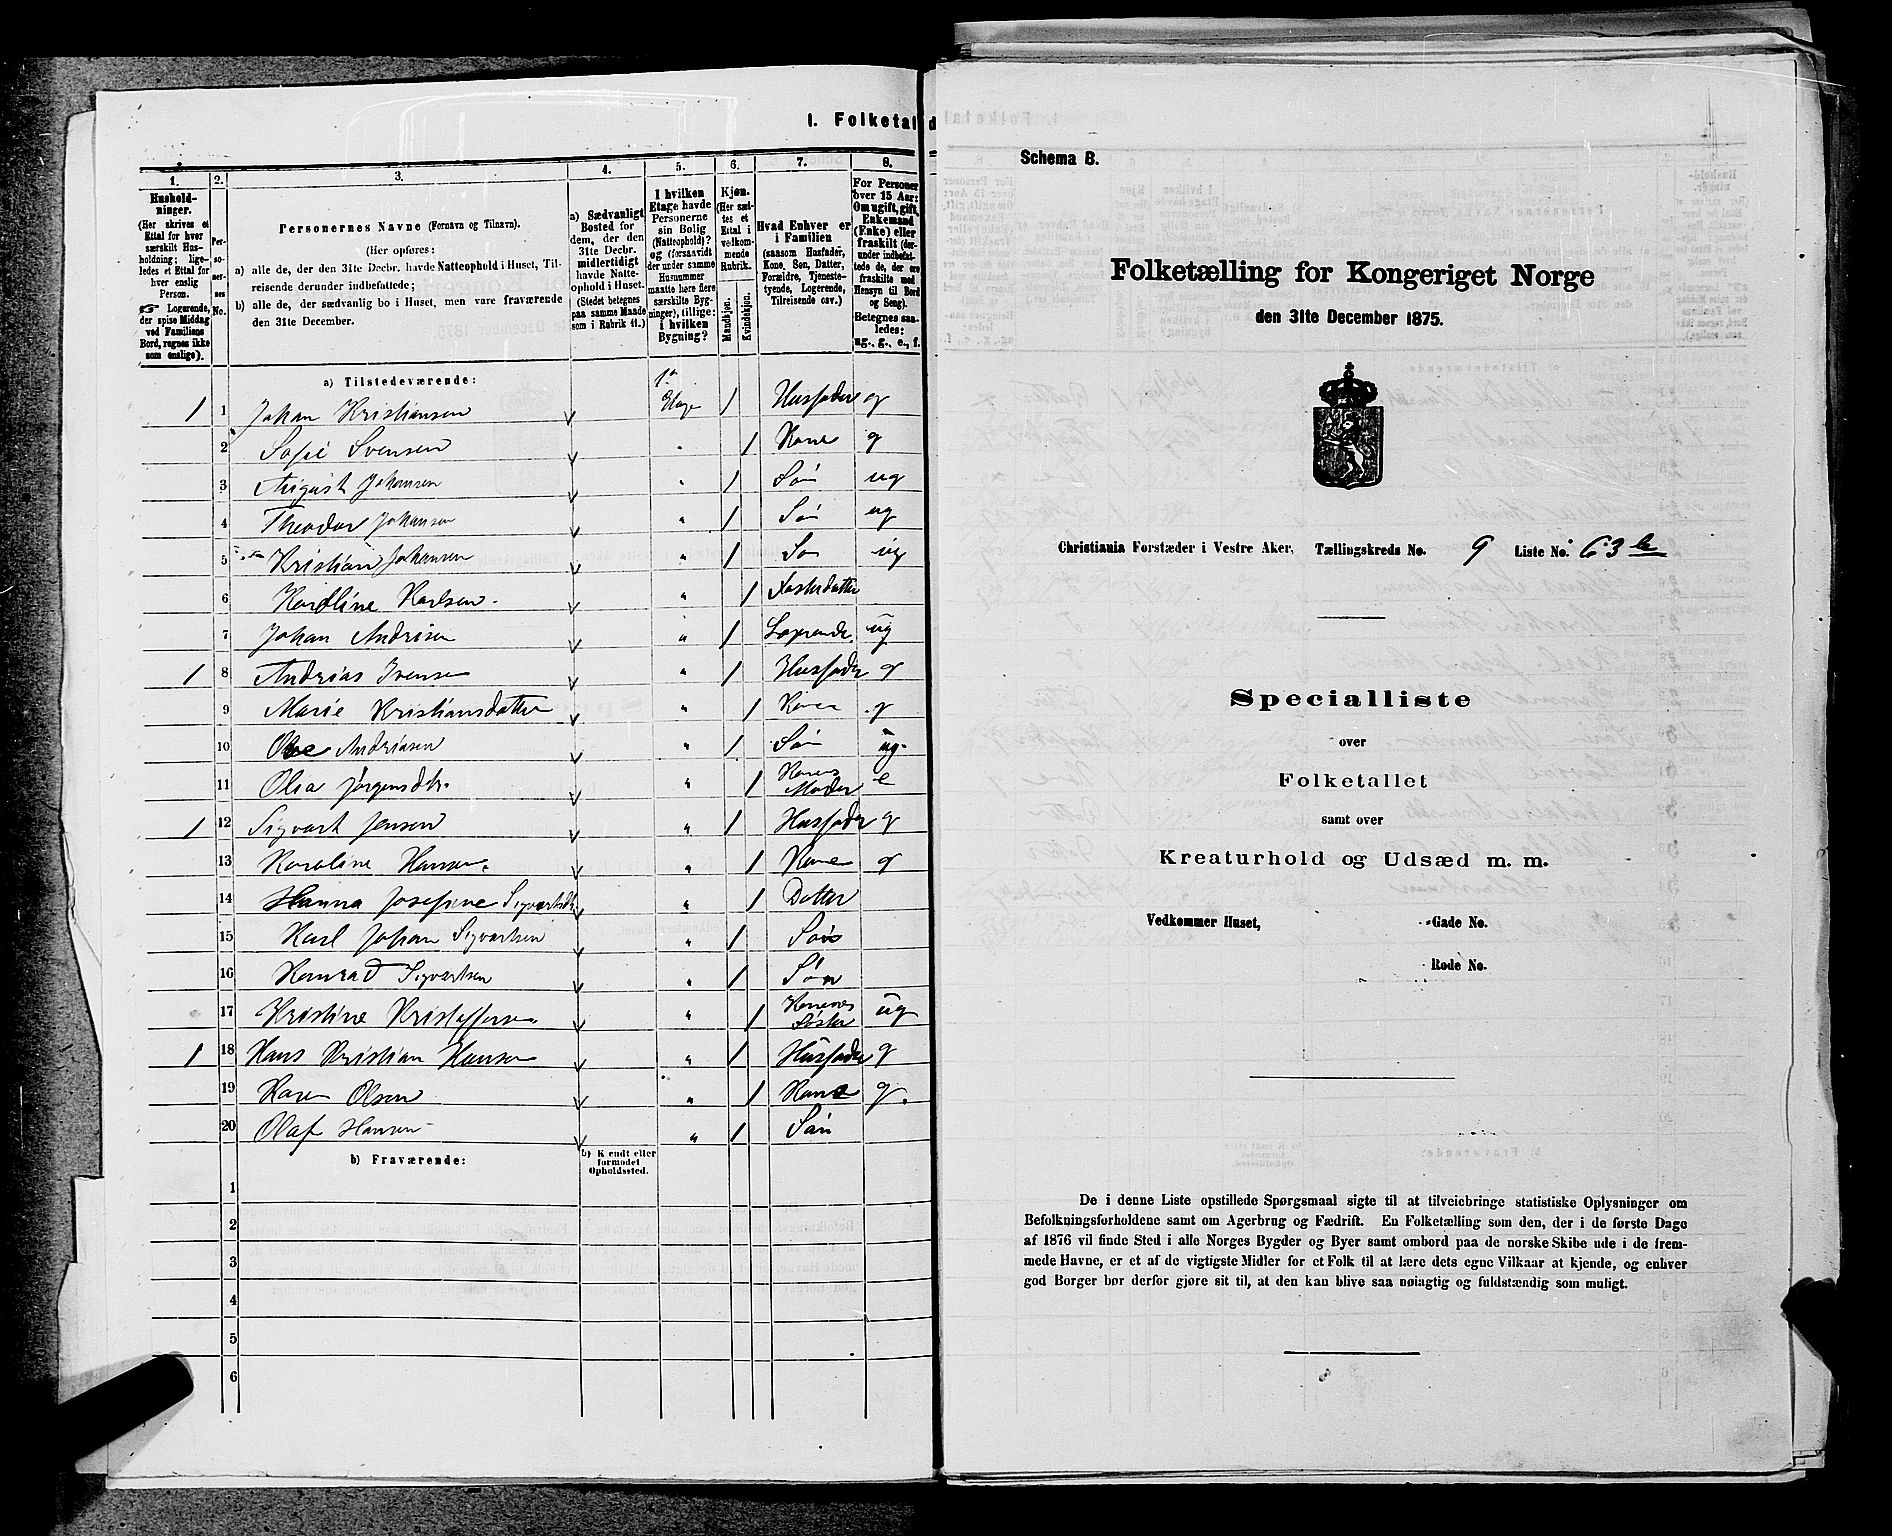 I. Folketal
1.
2.
3.
4.
5.
6.
7.
8.
Hushold-
ninger.
(Her skrives et
Ettal for hver
særskilt Hus-
holdning; lige-
ledes et Ettal for
hver enslig
Person.
Logerende,
der spise Middag
ved Familiens
Bord, regnes ikke
som enslige).
Per-
so-
ner-
nes
No.
Personernes Navne (Fornavn og Tilnavn).
(Her opføres:
a) alle de, der den 31te Decbr. havde Natteophold i Huset, Til-
reisende derunder indbefattede;
b) alle de, der sædvanlig bo i Huset, men vare fraværende
den 31te December.
a) Sædvanligt
Bosted for
dem, der den
31te Decbr.
midlertidigt
havde Natte-
ophold i Huset.
(Stedet betegnes
paa samme Maade
som i Rubrik 11.)
I hvilken
Etage havde
Personerne
sin Bolig
(Natteophold)?
og (forsaavidt
der under samme
Husnummer
maatte høre flere
særskilte Byg-
ninger), tillige:
i hvilken
Bygning?
Kjøn.
(Her sæt-
tes et
Ettal i
vedkom-
mende
Rubrik.
Mandkjøn.
Kvindekjøn.
Hvad Enhver er
i Familien
(saasom Husfader,
Kone, Søn, Datter,
Forældre, Tjeneste-
tyende, Logerende,
Tilreisende osv.)
For Personer
over 15 Aar:
Om ugift, gift,
Enkemand
(Enke) eller
fraskilt (der-
under indbefat-
tede de, der ere
fraskilte med
Hensyn til Bord
og Seng).
Betegnes saa-
ledes:
ug., g., e., f.
a) Tilstedeværende:
1 1 Johan Kristiansen 1ste Etage 1 Husfader g
2 Sofie Svensen " 1 Kone g
3 August Johansen " 1 Søn ug
4 Theodor Johansen " 1 Søn ug
5 Kristian Johansen " 1 Søn ug
6 Karoline Karlsen " 1 Fosterdatter
7 Johan Andrisen " 1 Logerende ug
1 8 Andrias Ivensen " 1 Husfader g
9 Marie Kristiansdatter " 1 Kone g
10 Ole Andriasen " 1 Søn ug.
11 Olia Jørgensdtr. " 1 Kones Moder e
1 12 Sigvart Jensen " 1 Husfader g
13 Karoline Hansen. " 1 Kone g
14 Hanna Josefine Sigvartsdtr. " 1 Datter
15 Karl Johan Sigvartsen " 1 Søn
16 Konrad Sigvartsen " 1 Søn
17 Kristine Kristoffersen " 1 Konenes Søster ug
1 18 Hans Kristian Hansen " 1 Husfader g
19 Karen Olsen " 1 Kone g.
20 Olaf Hansen " 1 Søn
b) Fraværende:
b) Kjendt eller
formodet
Opholdssted.
1
2
3
4
5
6
Schema B.
Folketælling for Kongeriget Norge
den 31te December 1875.
Christiania Forstæder i Vestre Aker. Tællingskreds No. 9 Liste No. 63 b
Specialliste
over
Folketallet
samt over
Kreaturhold og Udsæd m. m.
Vedkommer Huset, Gade No.
Rode No.
De i denne Liste opstillede Spørgsmaal sigte til at tilveiebringe statistiske Oplysninger om
Befolkningsforholdene samt om Agerbrug og Fædrift. En Folketælling som den, der i de første Dage
af 1876 vil finde Sted i alle Norges Bygder og Byer samt ombord paa de norske Skibe ude i de frem-
mede Havne, er et af de vigtigste Midler for et Folk til at lære dets egne Vilkaar at kjende, og enhver
god Borger bør derfor gjøre sit til, at den kan blive saa nøiagtig og fuldstændig som muligt.